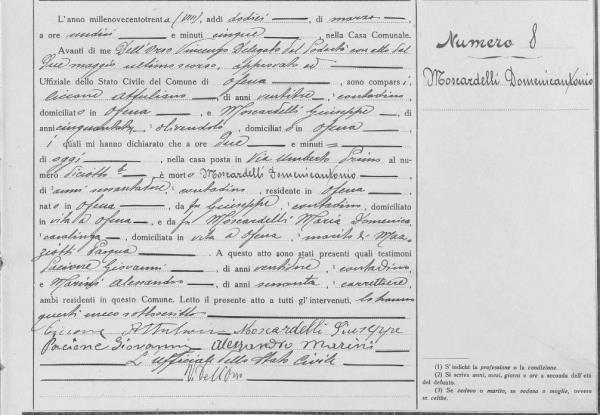 L'anno millenovecentotrenta (VIII), addì dodici, di marzo
a ore undici e minuti cinque, nella Casa Comunale.
Avanti di me Dell'Orso Vincenzo Delegato del Podestà con atto del
due maggio ultimo scorso, approvato ed
Uffiziale dello Stato Civile del Comune di Ofena, sono comparsi:
Ciccone Attuliano, di anni ventitre, contadino,
domiciliato in Ofena, e Moscardelli Giuseppe, di
anni cinquanta, olivendolo, domiciliato in Ofena,
i quali mi hanno dichiarato che a ore due e minuti
di oggi, nella casa posta in Via Umberto Primo al nu-
mero diciotto, è morto Moscardelli Domenicantonio
di anni, contadino, residente in Ofena
nato in Ofena, da fu Giuseppe, contadino, domiciliato
in vita a Ofena, e da fu Moscardelli Maria Domenica,
casalinga, domiciliata in vita a Ofena, marito di Maz-
Pasqua. A questo atto sono stati presenti quali testimoni
Pacione Giovanni, di anni, contadino,
e Marini Alessandro, di anni sessanta, carrettiere,
ambi residenti in questo Comune. Letto il presente atto a tutti gl'intervenuti, lo hanno
questi meco sottoscritto
Ciccone Moscardelli Giuseppe
Pacione Giovanni Alessandro Marini
L'Uffiziale dello Stato Civile
Numero 8
Moscardelli Domenicantonio
(1) S'indichi la professione o la condizione.
(2) Si scriva anni, mesi, giorni e ore a seconda dell'età
del defunto.
(3) Se vedovo o marito, se vedova o moglie, ovvero
se celibe.